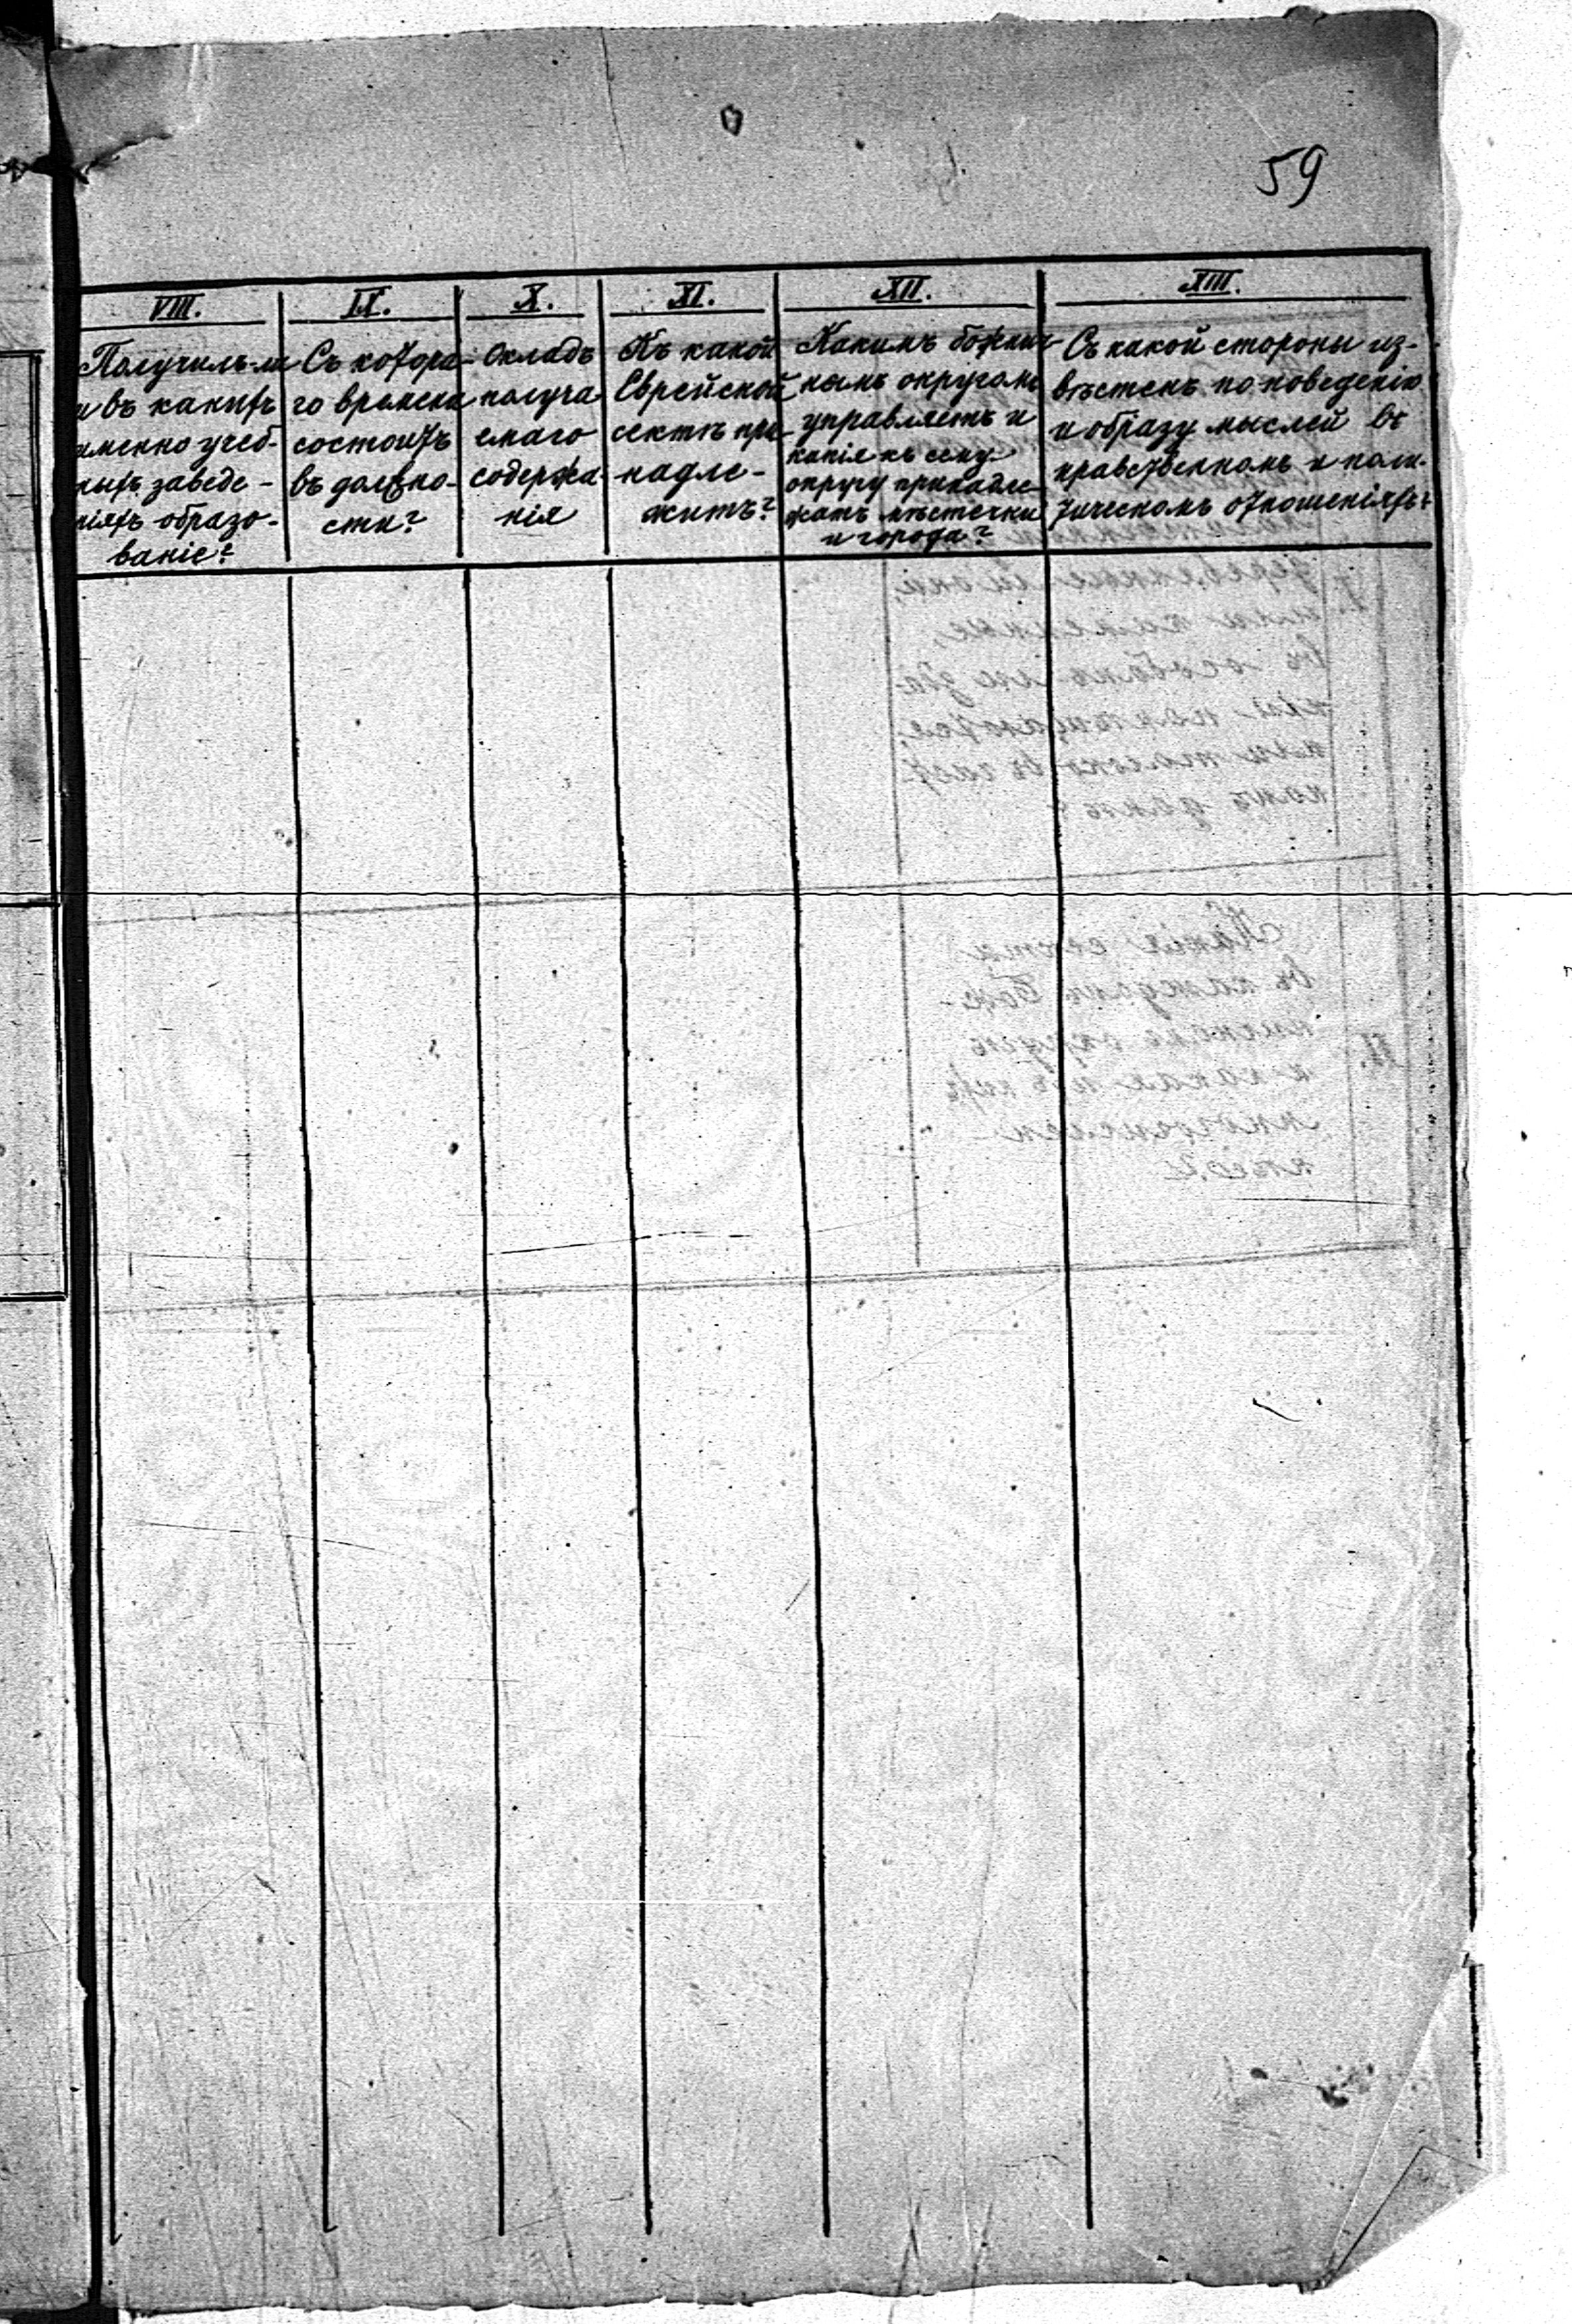 59
VIII.
Получилъ-ли
и въ какихъ
именно учеб-
ныхъ заведе-
ніяхъ образо-
ваніе?
IX.
Съ котора-
го времени
состоитъ
въ должно-
сти?
X.
Окладъ
получа
емаго
содержа-
нія
XI.
Къ какой
Еврейской
сектѣ при-
надле-
житъ?
XII.
Какимъ божнич-
нымъ округомъ
управляетъ и
какія къ сему
округу принадле-
жатъ мѣстечки
и города?
XIII.
Съ какой стороны из-
вѣстенъ по поведенію
и образу мыслей въ
нравственномъ и поли-
тическомъ отношеніяхъ?